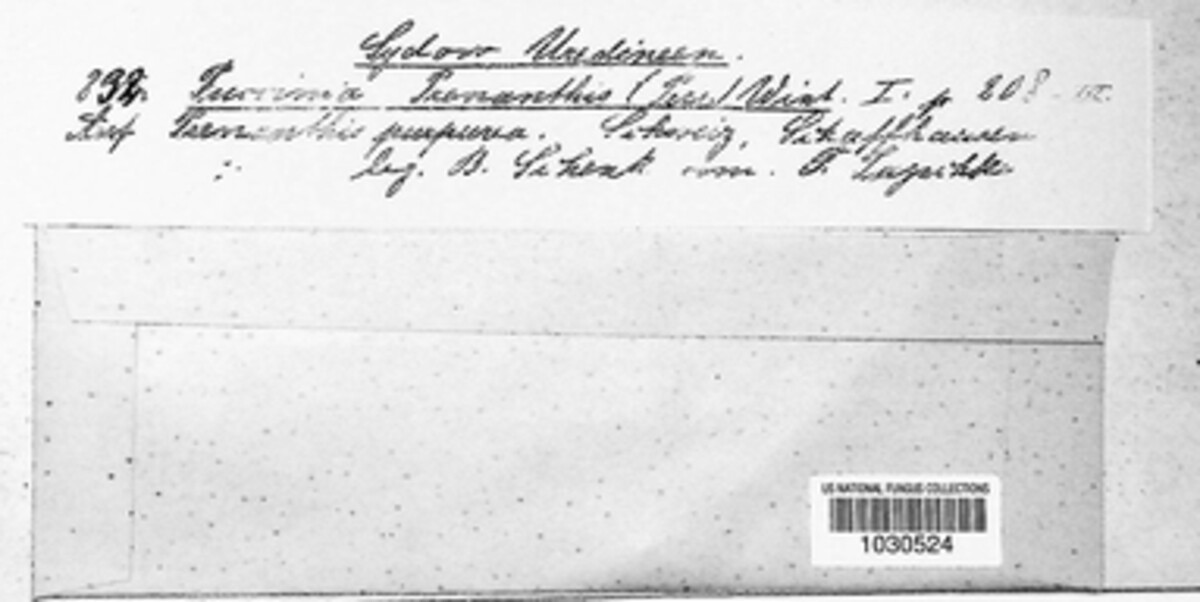 Sydow Uredineen.
832. Puccinia Prenanthis (Pers.) Wint. I. p 208
Auf Prenanthis purpurea. Schweiz, Schaffhausen
leg. B. Schenk com. F.
US NATIONAL FUNGUS COLLECTIONS
1030524